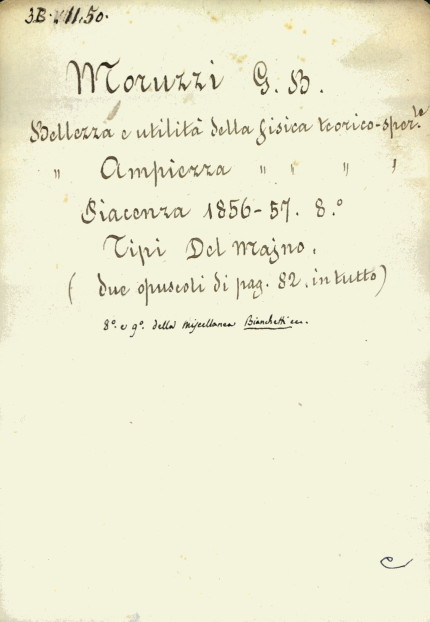 3B. VII.50.
Moruzzi G. B.
Bellezza e utilità della fisica teorico-sper.le
" Ampiezza " " " "
Piacenza 1856-57. 8.o
Tipi Del Majno.
( due opuscoli di pag. 82. in tutto )
8.o e 9.o della miscellanea Bianchetti ecc.